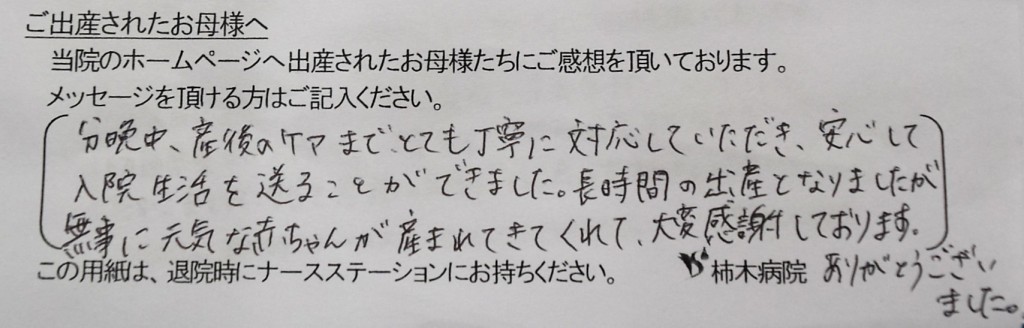 ご出産されたお母様へ
当院のホームページへ出産されたお母様たちにご感想を頂いております。
メッセージを頂ける方はご記入ください。
分娩中、産後のケアまで、とても丁寧に対応していただき、安心して
入院生活を送ることができました。長時間の出産となりましたが
無事に元気な赤ちゃんが産まれてきてくれて、大変感謝しております。
この用紙は、退院時にナースステーションにお持ちください。 柿木病院 ありがとうござい
ました。